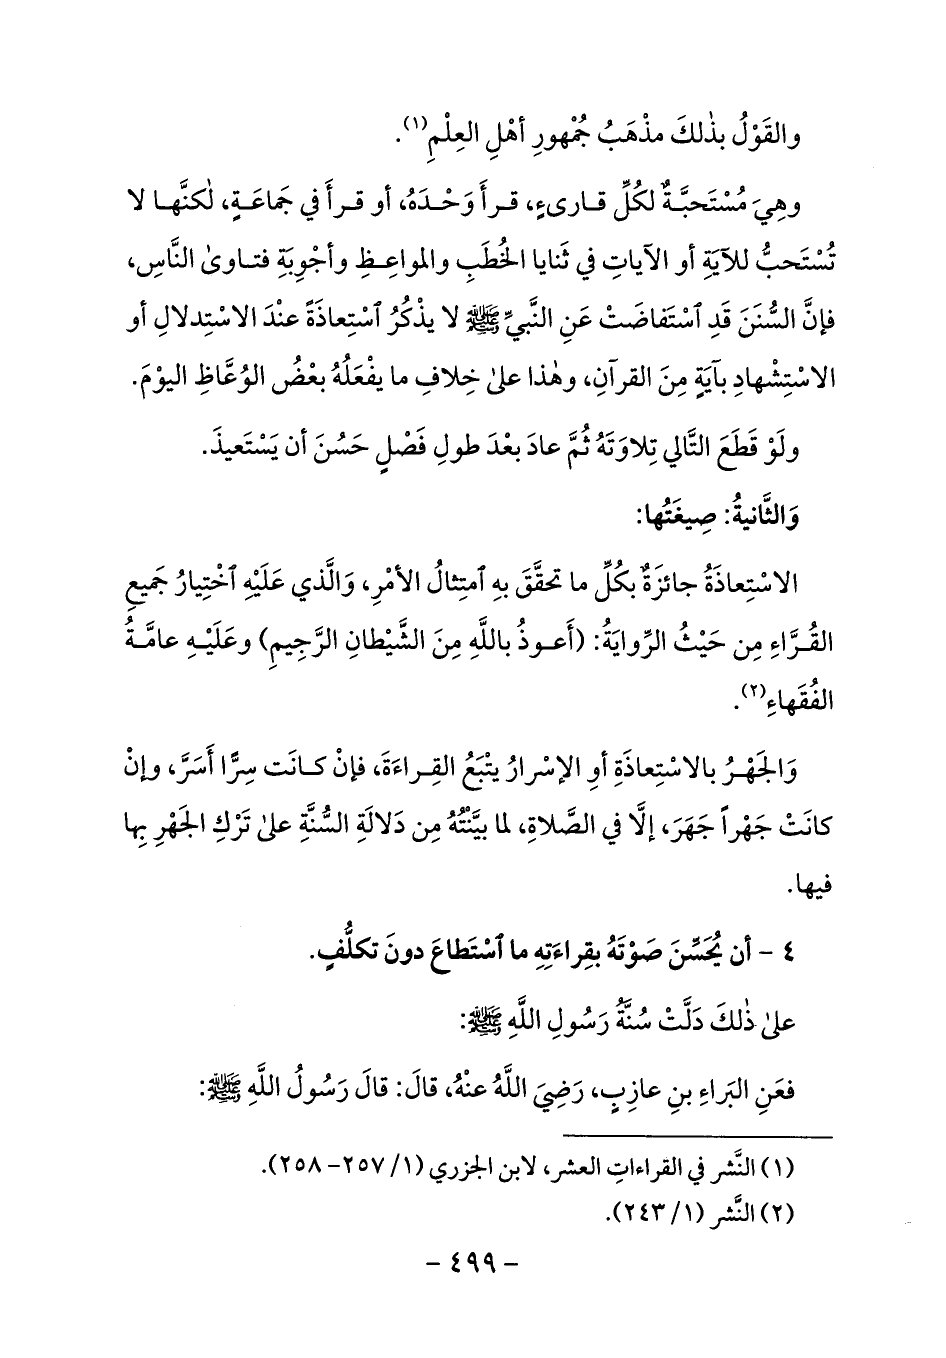 والقَوْلُ بذٰلكَ مذْهَبُ جُمْهورِ أهْلِ العِلْمِ(١).
وهِيَ مُسْتَحبَّةٌ لكُلِّ قارىءٍ، قرأَ وَحْدَهُ، أو قرأَ في جَماعَةٍ، لٰكنَّها لا
تُسْتَحبُّ للآيَةِ أو الآياتِ في ثَنايا الخُطَبِ والمواعِظِ وأجْوِبَةِ فتاوىٰ النَّاسِ،
فإنَّ السُّنَنَ قَدِ ٱسْتَفاضَتْ عَنِ النَّبيِّ ﷺ لا يذْكُرُ ٱسْتِعاذَةً عنْدَ الاسْتِدلالِ أو
الاسْتِشْهادِ بآيَةٍ مِنَ القرآنِ، وهٰذا علىٰ خِلافِ ما يفْعَلُهُ بعْضُ الوُعَّاظِ اليوْمَ.
ولَوْ قَطَعَ التَّالي تِلاوَتَهُ ثُمَّ عادَ بعْدَ طولِ فَصْلٍ حَسُنَ أن يَسْتَعيذَ.
وَالثَّانيةُ: صِيغَتُها:
الاسْتِعاذَةُ جائزَةٌ بكُلِّ ما تحقَّقَ بهِ ٱمتِثالُ الأمْرِ، وَالَّذي عَلَيْهِ ٱخْتِيارُ جَميعِ
القُرَّاءِ مِن حَيْثُ الرِّوايَةُ: (أعوذُ باللَّهِ مِنَ الشَّيْطانِ الرَّجيمِ) وعَلَيْهِ عامَّةُ
الفُقَهاءِ(٢).
وَالجَهْرُ بالاسْتِعاذَةِ أوِ الإسْرارُ يتْبَعُ القِراءَةَ، فإنْ كانَت سِرًّا أَسَرَّ، وإنْ
كانَتْ جَهْراً جَهَرَ، إلَّا في الصَّلاةِ، لما بيَّنْتُهُ مِن دَلالَةِ السُّنَّةِ علىٰ تَرْكِ الجَهْرِ بِها
فيها.
٤ - أن يُحَسِّنَ صَوْتَهُ بقِراءَتِهِ ما ٱسْتَطاعَ دونَ تكلُّفٍ.
علىٰ ذٰلكَ دَلَّتْ سُنَّةُ رَسُولِ اللَّهِ ﷺ:
فعَنِ البَراءِ بنِ عازِبٍ، رَضِيَ اللَّهُ عنْهُ، قالَ: قالَ رَسُولُ اللَّهِ ﷺ:
(١) النَّشر في القراءاتِ العشر، لابن الجزري (١/ ٢٥٧- ٢٥٨).
(٢) النَّشر (١/ ٢٤٣).
- ٤٩٩ -